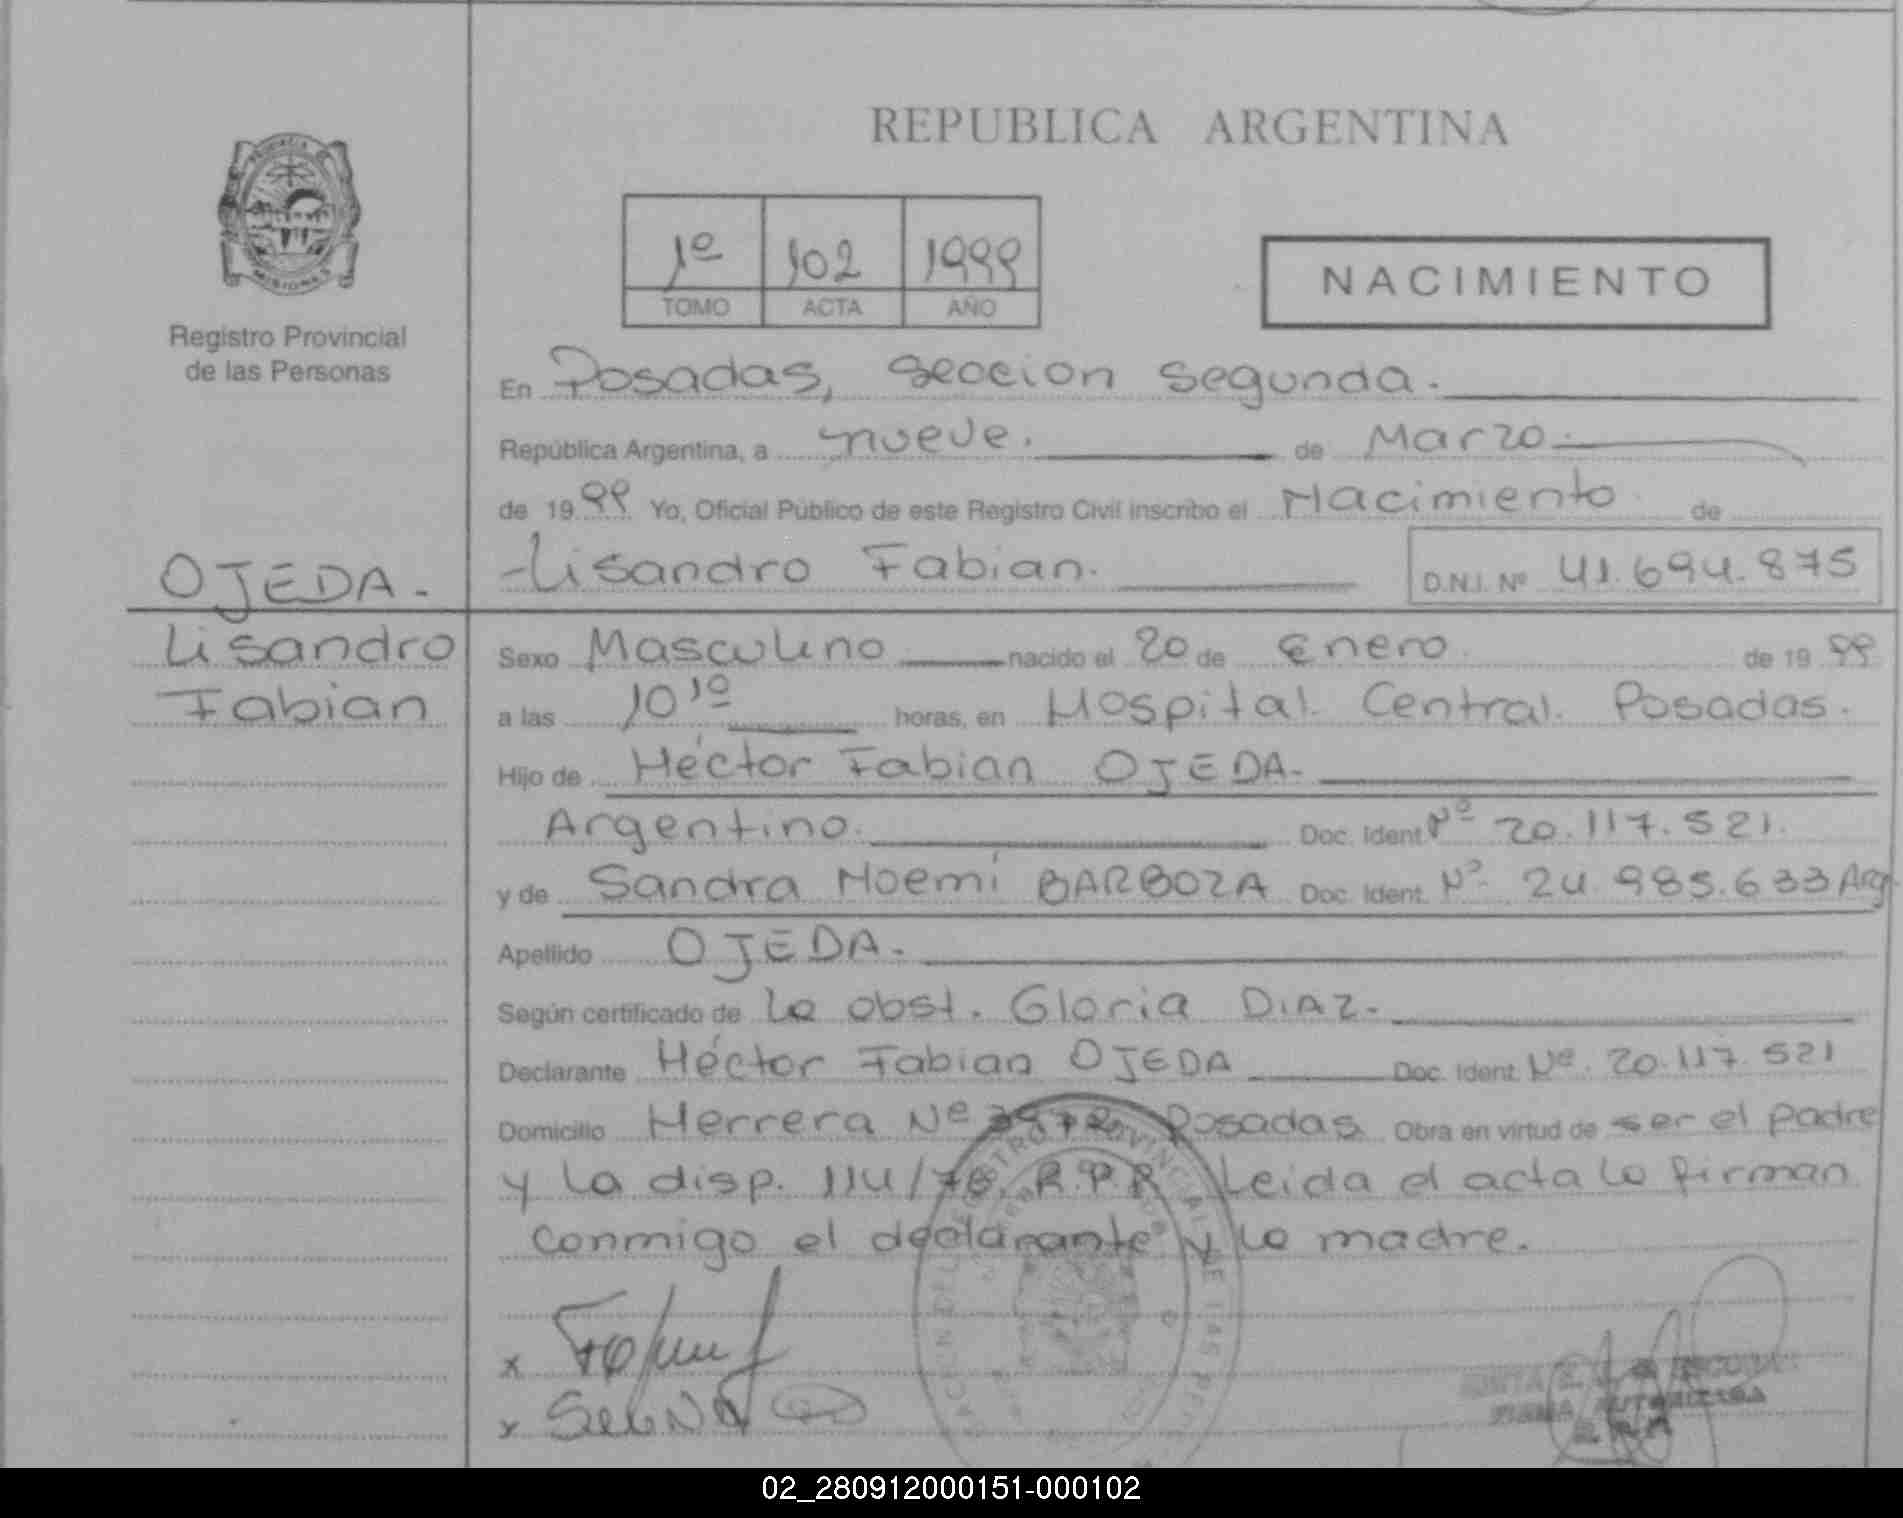 REPUBLICA ARGENTINA
1º 102 1999
TOMO ACTA AÑO
NACIMIENTO
Registro Provincial
de las Personas
En Posadas, Seccion Segunda.
República Argentina, a nueve. de Marzo.
de 1999 Yo, Oficial Público de este Registro Civil inscribo el Nacimiento de
Lisandro Fabian. D.N.I. Nº 41.694.875
OJEDA.
Lisandro
Fabian
Sexo Masculino nacido el 20 de Enero de 1999
a las 10 10 horas, en Hospital Central Posadas.
Hijo de Héctor Fabian OJEDA.
Argentino. Doc. Ident. Nº 20.117.521.
y de Sandra Noemí BARBOZA Doc. Ident. Nº 24.985.633 Arg
Apellido OJEDA.
Según certificado de la obst. Gloria DIAZ.
Declarante Héctor Fabian OJEDA Doc. Ident. Nº. 20.117.521
Domicilio Herrera Nº Posadas Obra en virtud de ser el padre
y la disp. 114/78. R.P.P. Leida el acta la firman
conmigo el declarante y la madre.
x
x
FIRMA AUTORIZADA
02_280912000151-000102